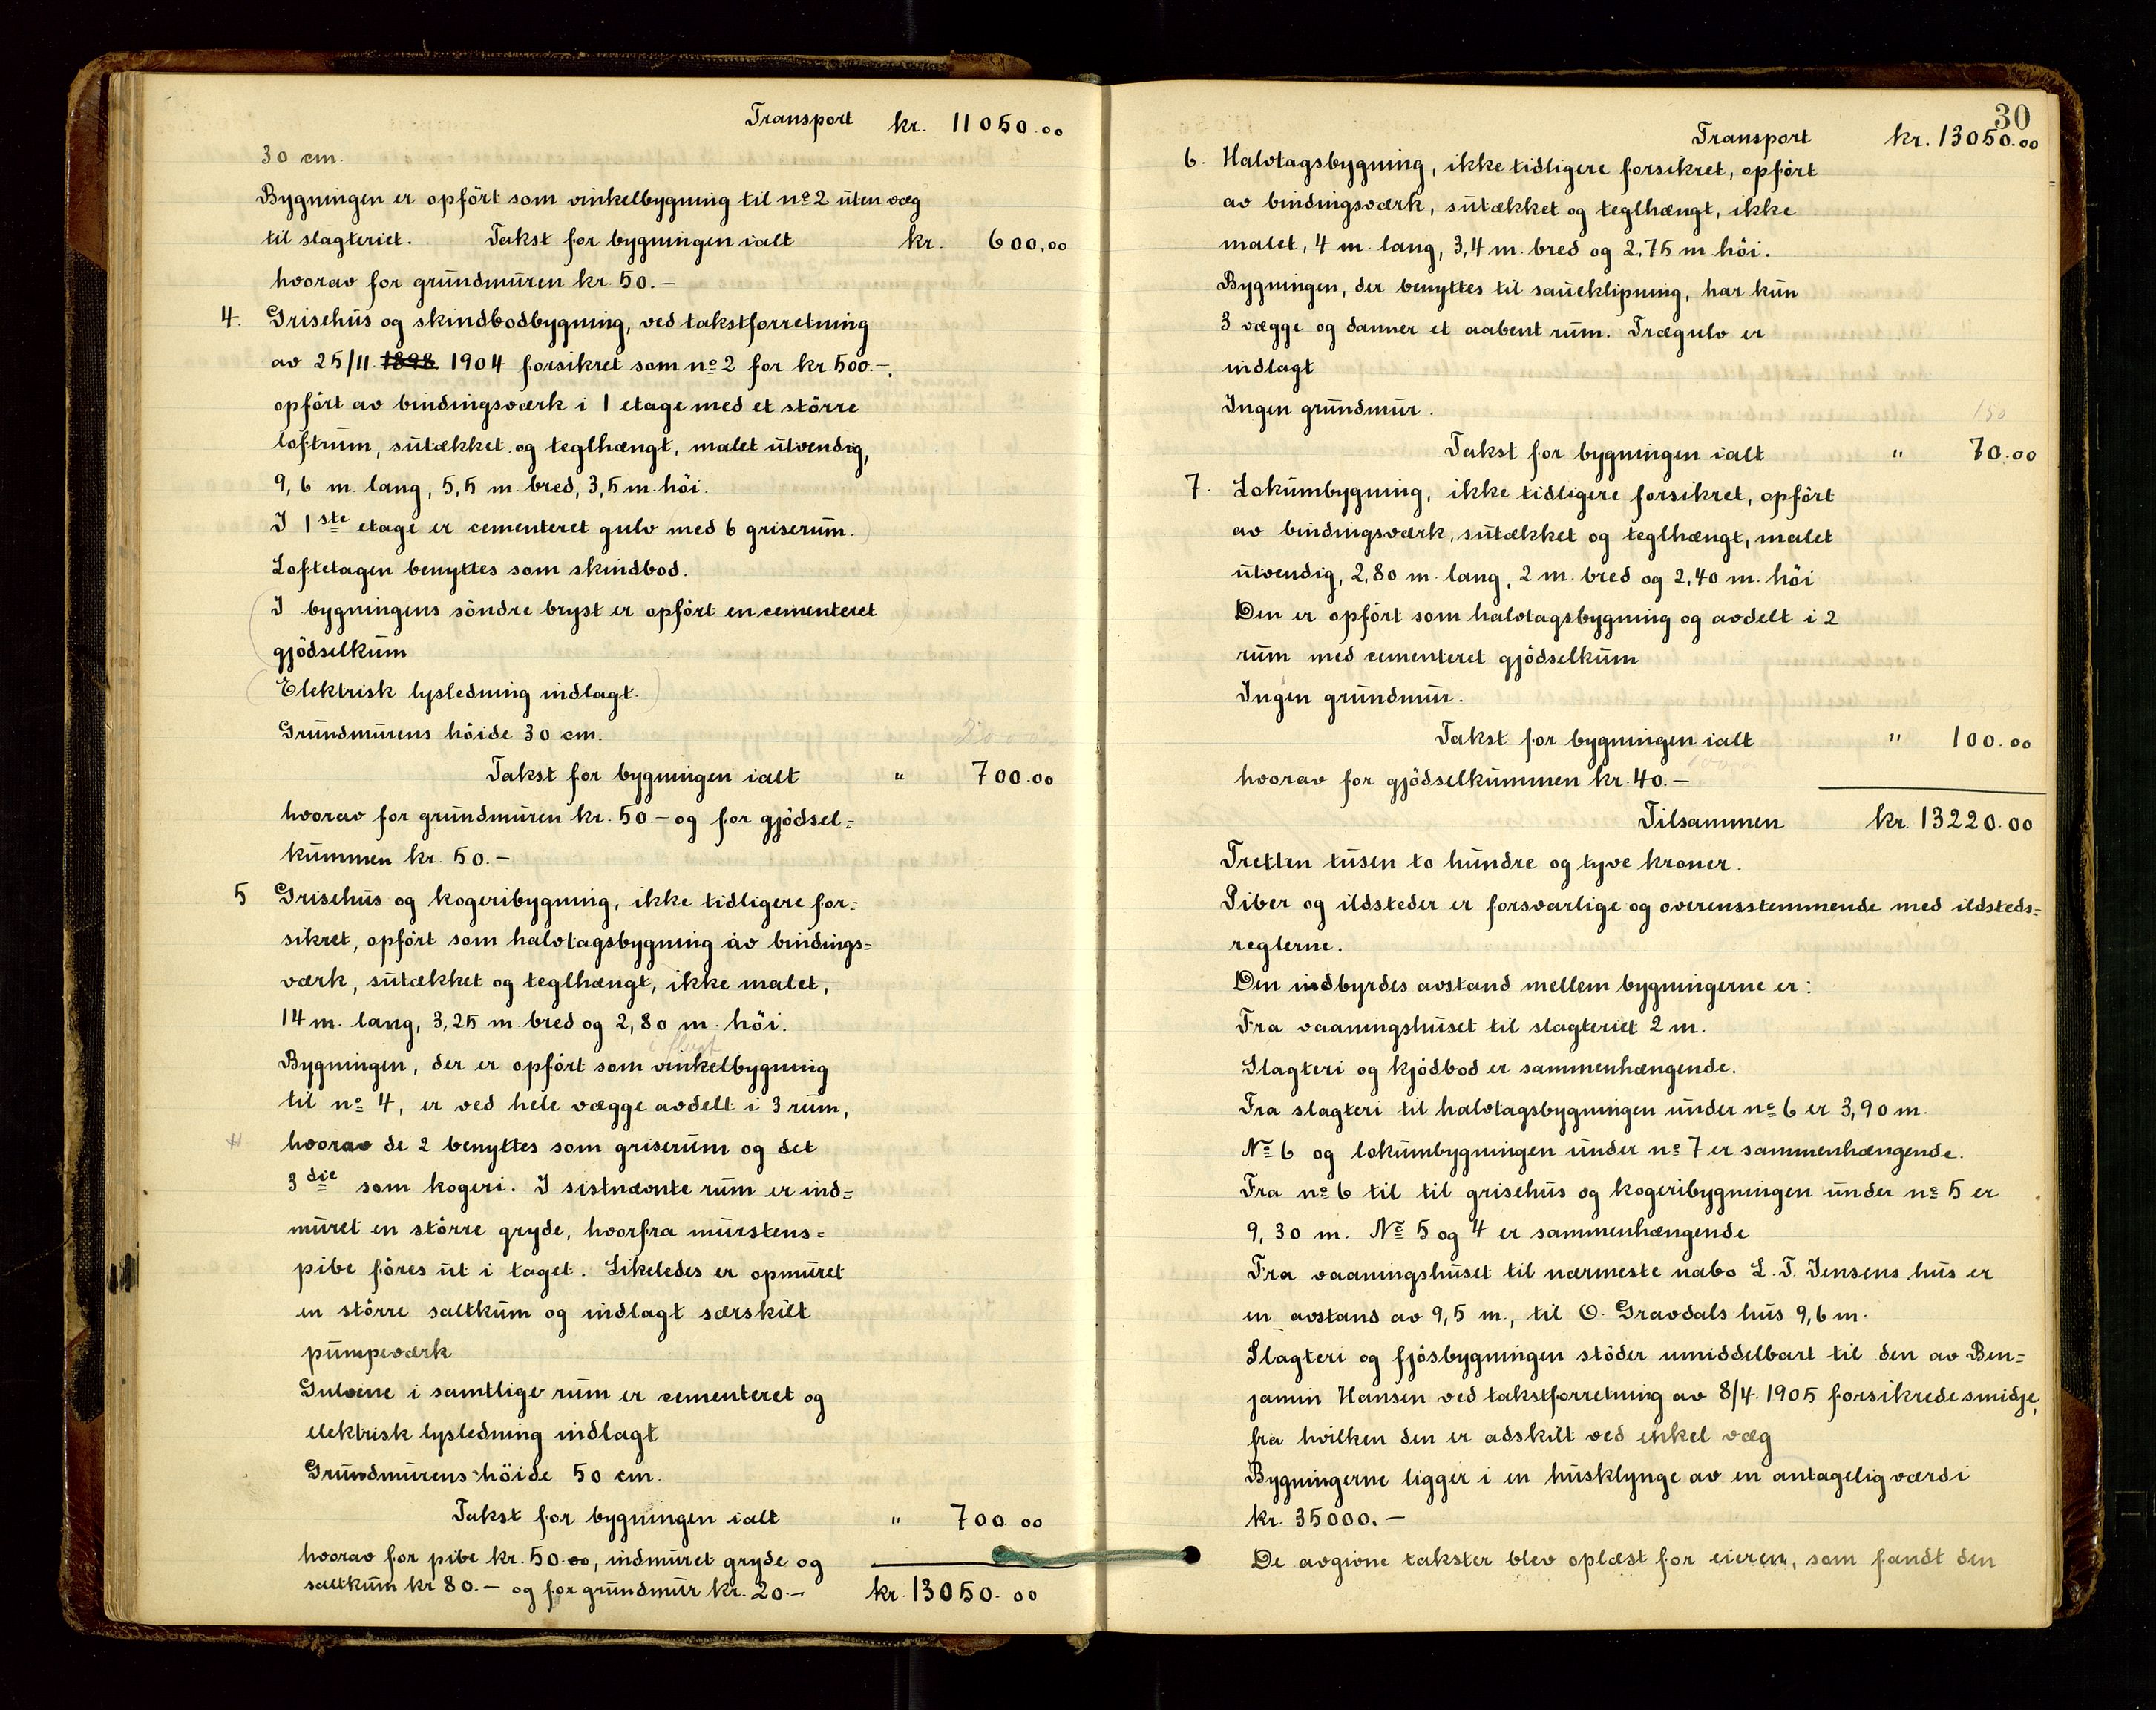 Transport kr. 11050.00
30 cm.
Bygningen er opført som vinkelbygning til no 2 uten væg
til slagteriet. Takst for bygningen ialt kr. 600,00
hvorav for grundmuren kr. 50.—
4. Grisehus og skindbodbygning, ved takstforretning
av 25/11 1898 1904 forsikret som no 2 for kr. 500.—,
opført av bindingsværk i 1 etage med et større
loftrum, sutækket og teglhængt, malet utvendig,
9,6 m. lang, 5,5 m. bred, 3,5 m. høi.
I 1ste etage er cementeret gulv med 6 griserum.
Loftetagen benyttes som skindbod.
(I bygningens søndre bryst er opført en cementeret
gjødselkum
(Elektrisk lysledning indlagt.)
Grundmurens høide 30 cm.
Takst for bygningen ialt " 700.00
hvorav for grundmuren kr. 50.— og for gjødsel=
kummen kr. 50.—
5 Grisehus og kogeribygning, ikke tidligere for=
sikret, opført som halvtagsbygning av bindings=
værk, sutækket og teglhængt, ikke malet,
14 m. lang, 3,25 m. bred og 2,80 m. høi.
i flugt
Bygningen, der er opført som vinkelbygning
til no 4, er ved hele vægge avdelt i 3 rum,
hvorav de 2 benyttes som griserum og det
3die som kogeri. I sistnævnte rum er ind=
muret en større gryde, hvorfra murstens=
pibe føres ut i taget. Likeledes er opmuret
en større saltkum og indlagt særskilt
pumpeværk
Gulvene i samtlige rum er cementeret og
elektrisk lysledning indlagt
Grundmurens høide 50 cm.
Takst for bygningen ialt " 700.00
hvorav for pibe kr. 50.00, indmuret gryde og
saltkum kr 80.— og for grundmur kr. 20.— kr. 13050.00
30
Transport kr. 13050.00
6. Halvtagsbygning, ikke tidligere forsikret, opført
av bindingsværk, sutækket og teglhængt, ikke
malet, 4 m. lang, 3,4 m. bred og 2,75 m høi.
Bygningen, der benyttes til saueklipning, har kun
3 vægge og danner et aabent rum. Trægulv er
indlagt
Ingen grundmur. 150
Takst for bygningen ialt " 70.00
7. Lokumbygning, ikke tidligere forsikret, opført
av bindingsværk, sutækket og teglhængt, malet
utvendig, 2,80 m. lang, 2 m. bred og 2,40 m. høi
Den er opført som halvtagsbygning og avdelt i 2
rum med cementeret gjødselkum
Ingen grundmur.
Takst for bygningen ialt " 100.00
hvorav for gjødselkummen kr. 40.—
Tilsammen kr. 13220.00
Tretten tusen to hundre og tyve kroner.
Piber og ildsteder er forsvarlige og overensstemmende med ildsteds=
reglerne.
Den indbyrdes avstand mellem bygningerne er:
Fra vaaningshuset til slagteriet 2 m.
Slagteri og kjødbod er sammenhængende.
Fra slagteri til halvtagsbygningen under no 6 er 3,90 m.
No 6 og lokumbygningen under no 7 er sammenhængende.
Fra no 6 til til grisehus og kogeribygningen under no 5 er
9,30 m. No 5 og 4 er sammenhængende
Fra vaaningshuset til nærmeste nabo L. T. Jensens hus er
en avstand av 9,5 m., til O. Gravdals hus 9,6 m.
Slagteri og fjøsbygningen støder umiddelbart til den av Ben=
jamin Hansen ved takstforretning av 8/4. 1905 forsikrede smidje,
fra hvilken den er adskilt ved enkel væg
Bygningerne ligger i en husklynge av en antagelig værdi
kr. 35000.—
De avgivne takster blev oplæst for eieren, som fandt den